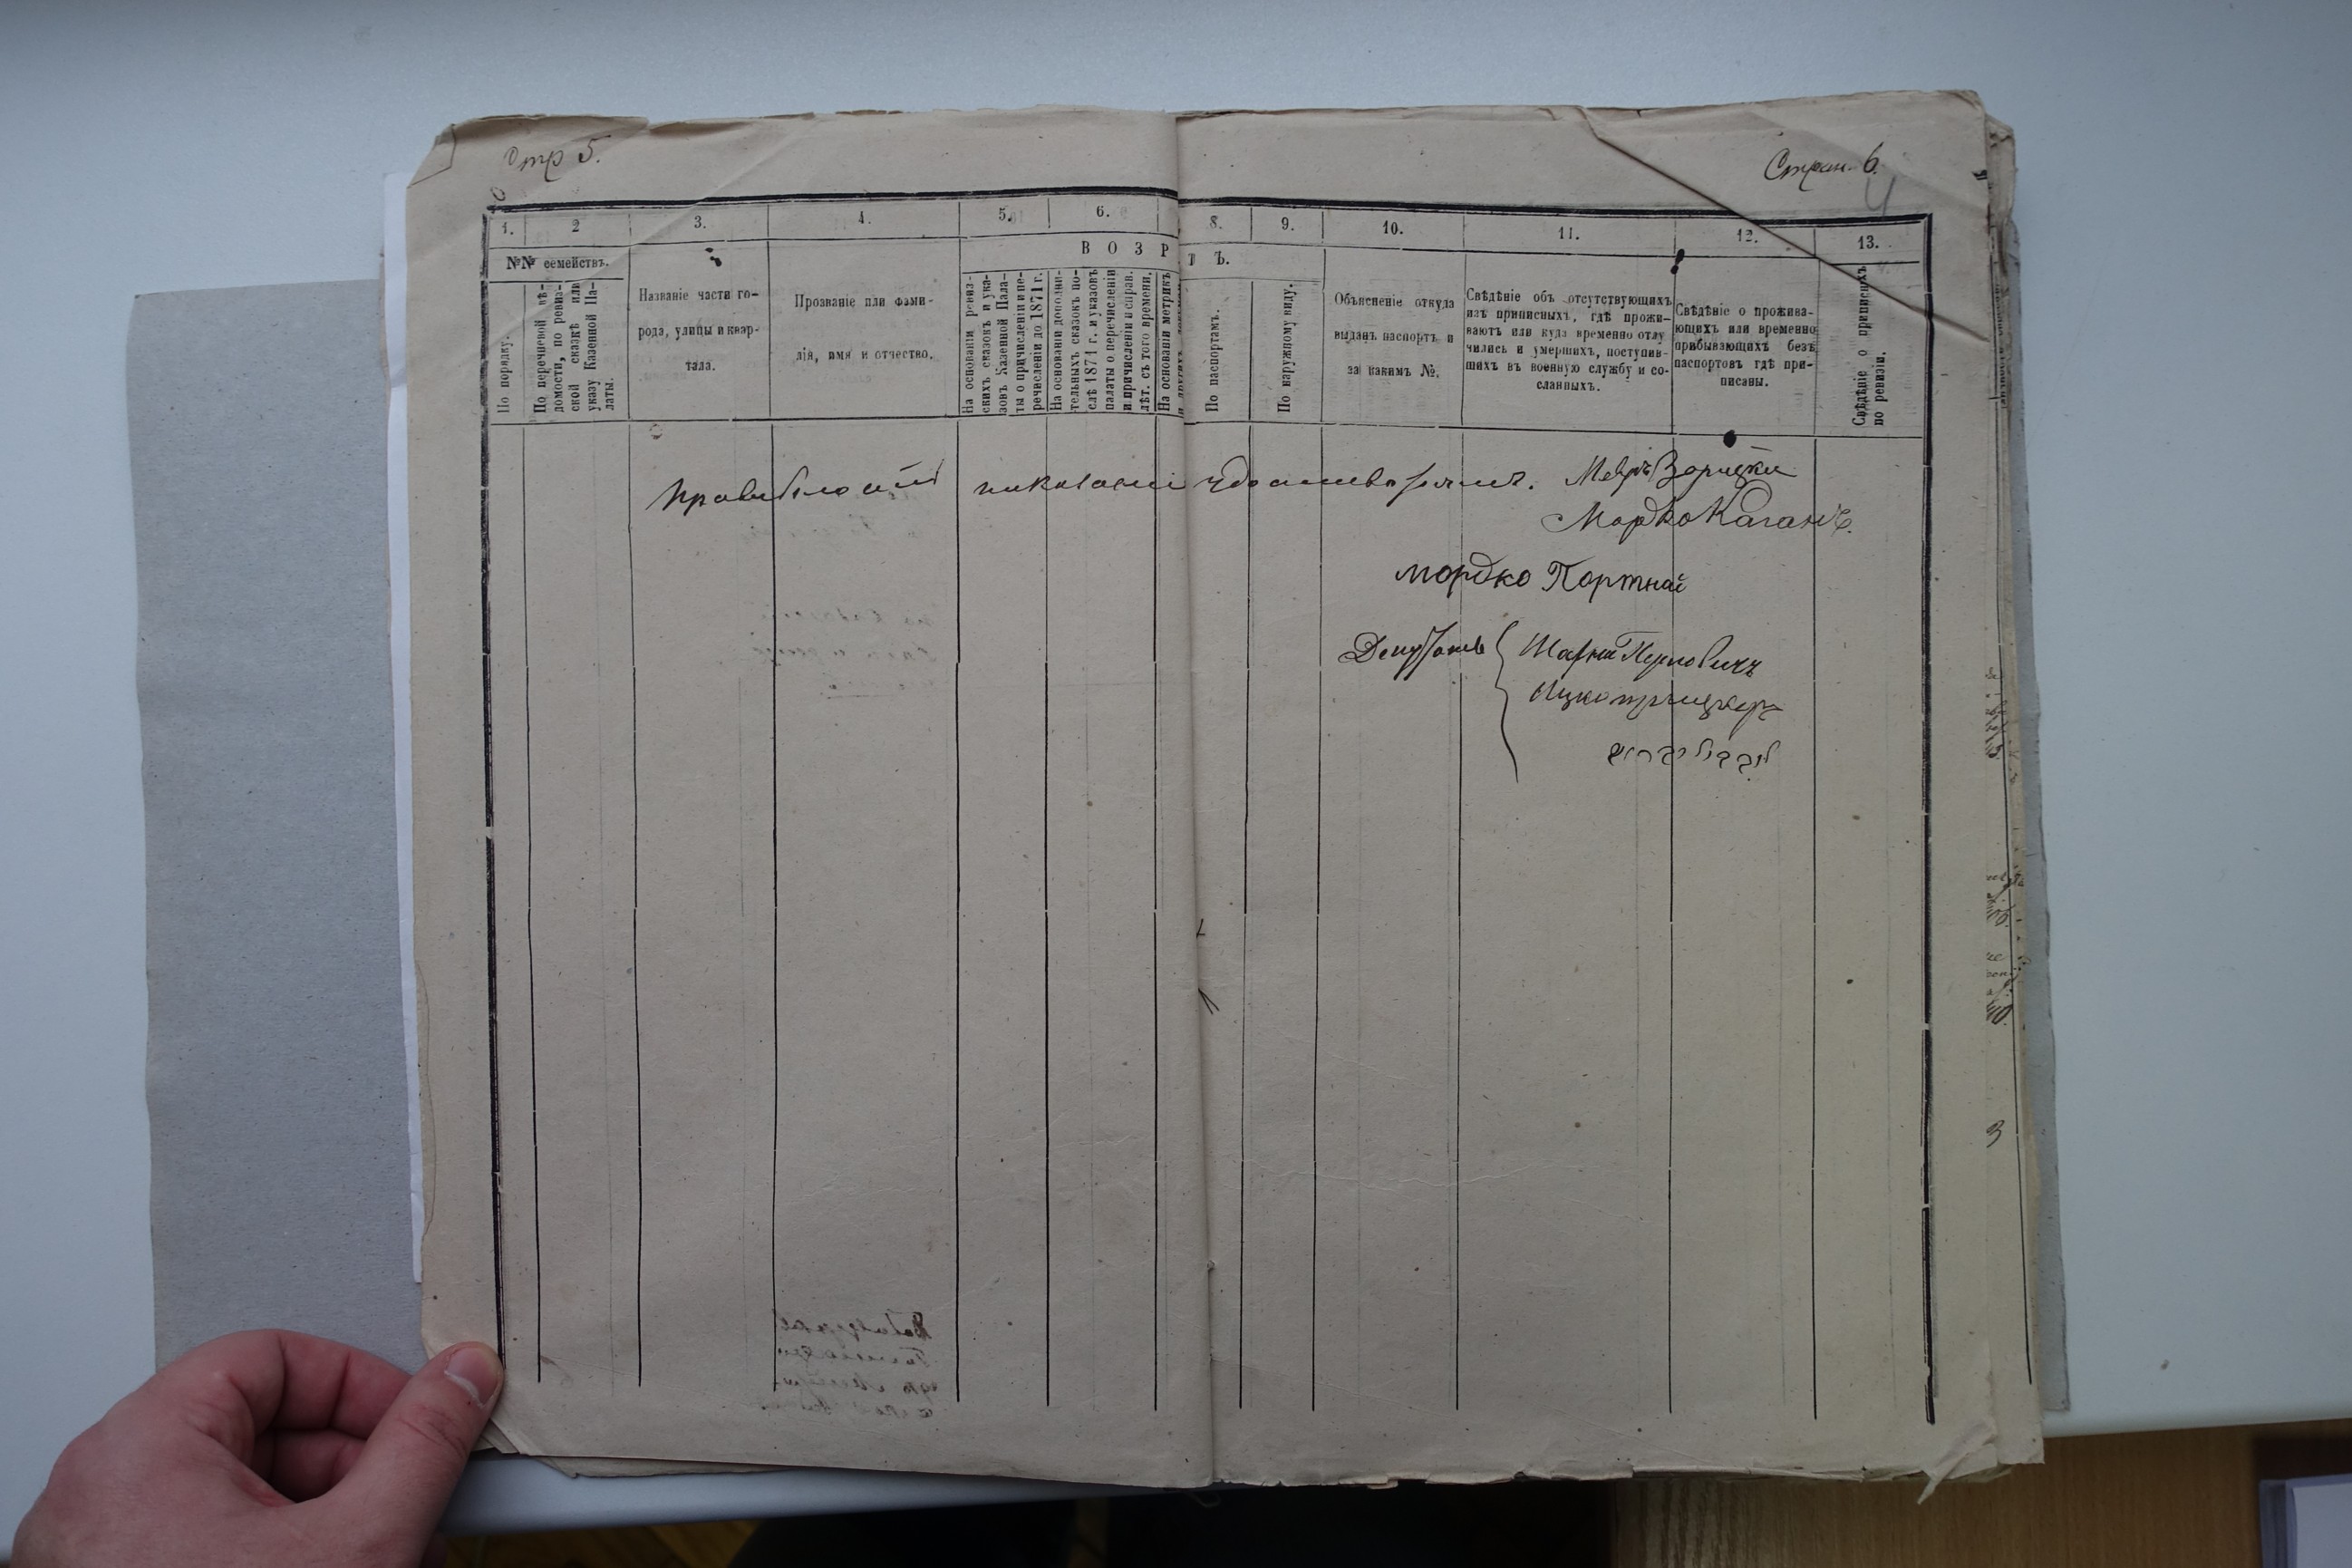 Стр 5.
Стран. 6.
4
1.
2
3.
4.
5.
6.
8.
9.
10.
11.
12.
13.
№№ семействъ.
ВОЗР
ТЪ.
По порядку.
По перечневой вѣ-
домости, по ревиз-
ской сказкѣ или
указу Казенной Па-
латы.
Названіе части го-
рода, улицы и квар-
тала.
Прозваніе или фами-
лія, имя и отчество.
На основаніи ревиз-
скихъ сказокъ и ука-
зовъ Казенной Пала-
ты о причисленіи и пе-
речисленіи до 1871 г.
На основаніи дополни-
тельныхъ сказокъ по-
слѣ 1871 г. и указовъ
палаты о перечисленіи
и причисленіи и справ.
лѣт. съ того времени.
На основаніи метрикъ
По паспортамъ.
По наружному виду.
Объясненіе откуда
выданъ паспортъ и
за какимъ №.
Свѣдѣніе объ отсутствующихъ
изъ приписныхъ, гдѣ прожи-
ваютъ или куда временно отлу
чились и умершихъ, поступив-
шихъ въ военную службу и со-
сланныхъ.
Свѣдѣніе о прожива-
ющихъ или временно
прибывающихъ безъ
паспортовъ гдѣ при-
писаны.
Свѣдѣніе о приписныхъ
по ревизіи.
показаніи удостоверяемъ.
Мордко Каганъ.
Мордко Портной
Депутаты
Перловичъ
Ицко